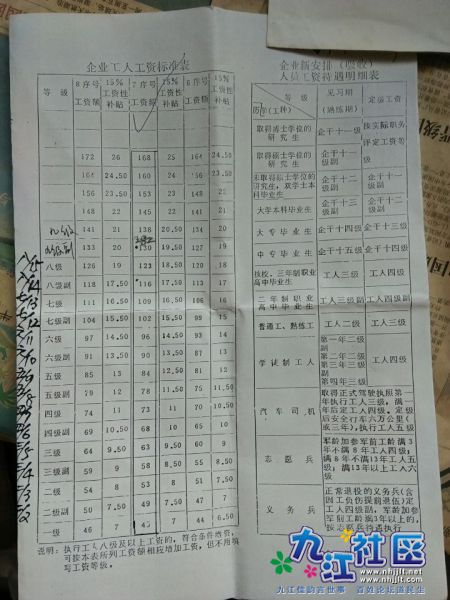 企业工人工资标准表
等级 8序号工资额 15%工资性补贴 7序号工资额 15%工资性补贴 6序号工资额 15%工资性补贴
172 26 168 25 164 24.50
164 24.50 160 24 156 23.50
156 23.50 153 23 148 22
148 22 145 22 141 21
141 21 138 20.50 134 20
133 20 130 19.50 127 19
八级 126 19 123 18.50 120 18
八级副 118 17.50 116 17.50 113 17
七级 111 16.50 109 16.50 106 16
七级副 104 15.50 102 15.50 99 15
六级 97 14.50 96 14.50 93 14
六级副 91 13.50 90 13.50 87 13
五级 85 13 84 12.50 81 12
五级副 79 12 78 12 75
四级 74 11 73 11 70 10.50
四级副 69 10.50 68 10 65 10
三级 64 9.50 63 9.50 60 9
三级副 59 9 58 8.50 55 8.50
二级 54 8 53 8 50 7.50
二级副 50 7.50 49 7.50 47 7
一级 46 7 45 7 44 6.50
说明：执行工人八级及以上工资的，符合条件增资，
可按本表所列工资额相应增加工资，但不用填
写工资等级。
企业新安排（吸收）
人员工资待遇明细表
等级 学历(工种) 见习期(熟练期) 定级工资
取得博士学位的研究生 企干十一级 按实际职务评定工资等级
取得硕士学位的研究生 企干十一级副
未取得硕士学位的研究生，双学士本科毕业生 企干十二级副 企干十二级
大学本科毕业生 企干十三级副 企干十二级副
大专毕业生 企干十四级 企干十三级
中专毕业生 企干十五级 企干十四级
技校、三年制职业高中毕业生 工人三级 工人四级
二年制职业高中毕业生 工人三级副 工人四级副
普通工、熟练工 工人二级 工人三级
学徒制工人 第一年二级副 第二年二级 第三年三级副 第四年三级 工人四级
汽车司机 取得正式驾驶执照第一年执行工人三级，满一年后定工人四级。定级后安全行车六万公里(或三年)，执行工人五级
志愿兵 军龄加参军前工龄满3年不满8年工人四级；满8年不满13年工人五级；满13年以上工人六级
义务兵 正常退役的义务兵(含因工负伤提前退伍)定工人四级副，军龄加参军前工龄满3年以上的，按志愿兵待遇执行
九江社区
www.nhjjlt.net
www.nhjjlt.com
九江侬韵言世事 百姓论坛道民生